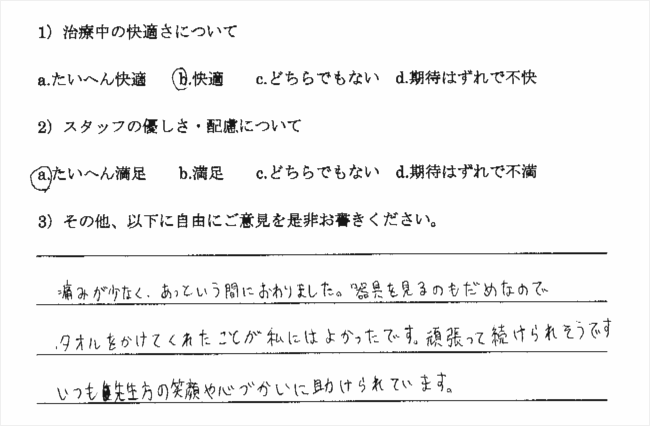 1）治療中の快適さについて
a.たいへん快適　b.快適　c.どちらでもない　d.期待はずれで不快
2）スタッフの優しさ・配慮について
a.たいへん満足　b.満足　c.どちらでもない　d.期待はずれで不満
3）その他、以下に自由にご意見を是非お書きください。
痛みが少なく、あっという間におわりました。器具を見るのもだめなので
タオルをかけてくれたことが私にはよかったです。頑張って続けられそうです
いつも先生方の笑顔や心づかいに助けられています。